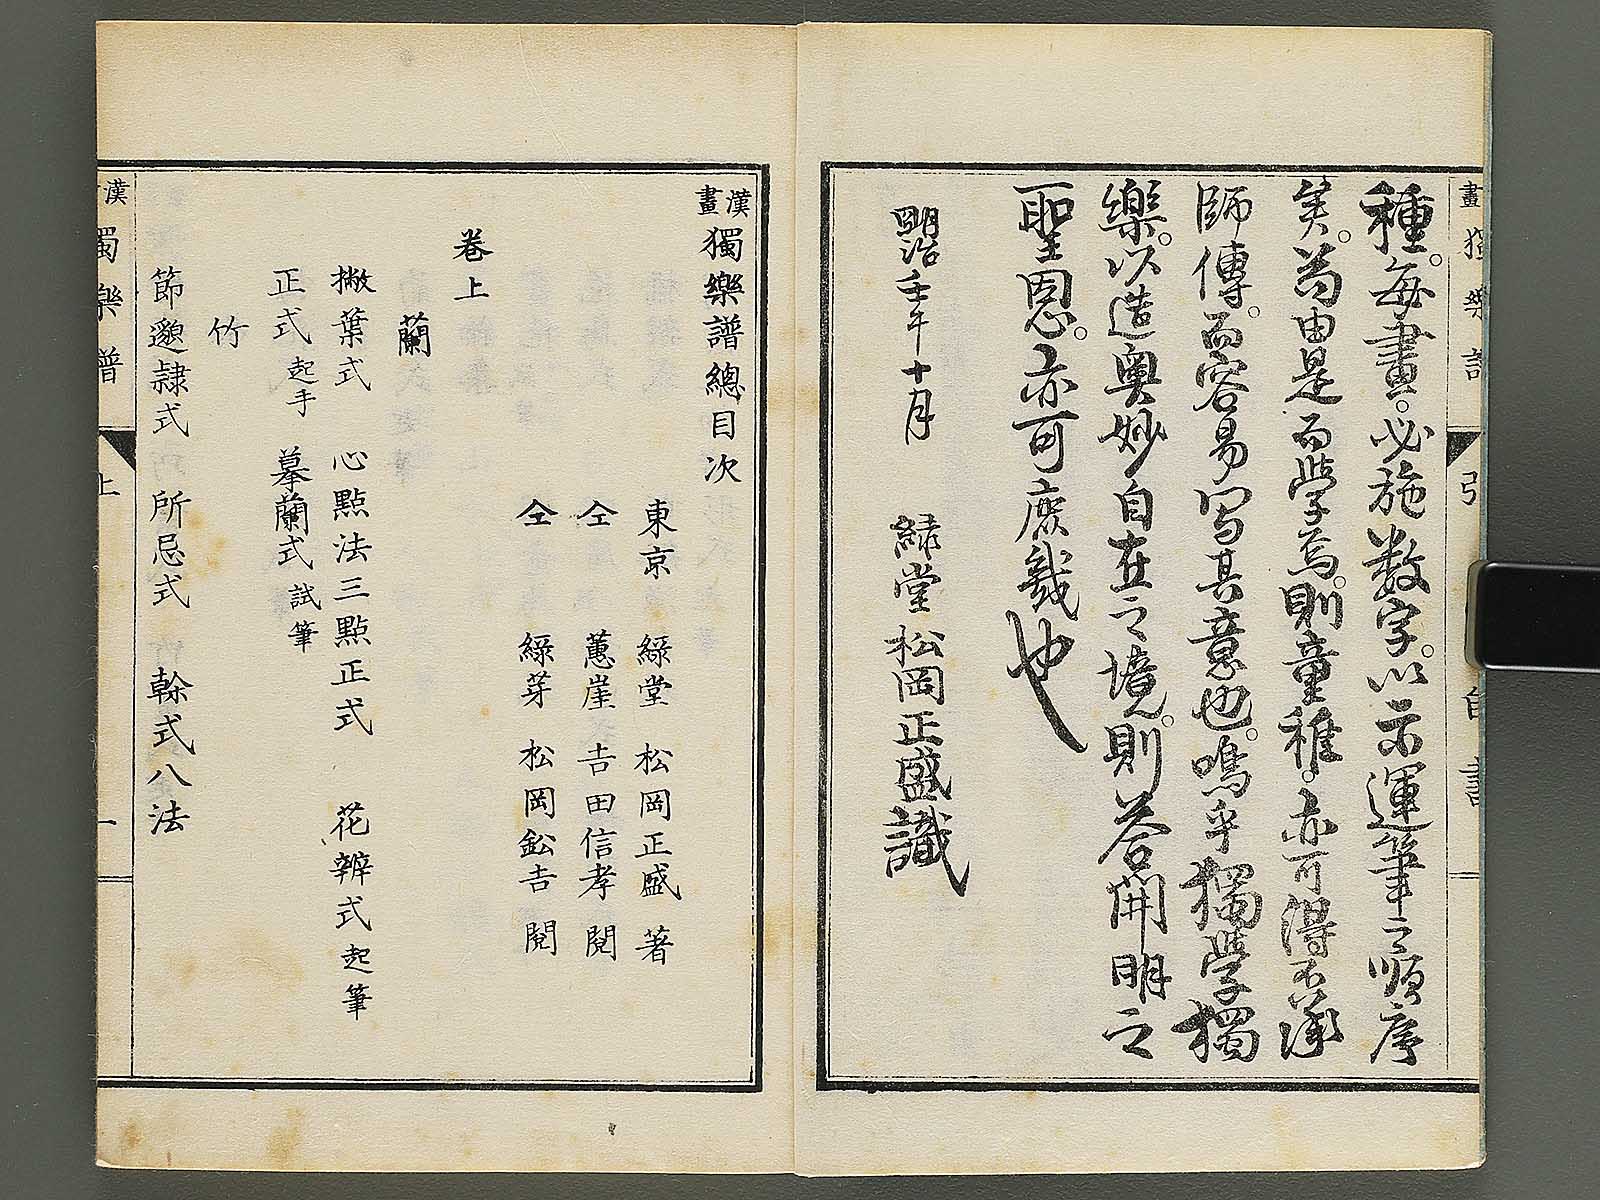 種。每畫。必施數字。以示運筆之順序
矣。苟由是而學焉。則童稚。亦可得不滎
師傳。而容易写其意也。嗚乎獨學獨
樂。以造奧妙自在之境。則答開明之
聖恩。亦可庶幾也
明治壬午十月 緑堂松岡正盛識
漢畫獨樂譜總目次
東京 緑堂 松岡正盛 著
仝 蕙崖 吉田信孝 閲
仝 緑芽 松岡鈆吉 閲
卷上
蘭
撇葉式 心點法三點正式 花辨式起筆
正式起手 摹蘭式試筆
竹
節邈隷式 所忌式 榦式八法
漢 獨樂譜 上 一